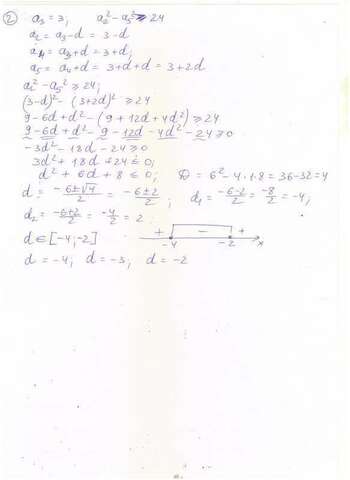 ② a₃ = 3; a₂² - a₅² ≥ 24
a₂ = a₃ - d = 3 - d
a₄ = a₃ + d = 3 + d;
a₅ = a₄ + d = 3 + d + d = 3 + 2d
a₂² - a₅² ≥ 24;
(3-d)² - (3+2d)² ≥ 24
9 - 6d + d² - (9 + 12d + 4d²) ≥ 24
9 - 6d + d² - 9 - 12d - 4d² - 24 ≥ 0
-3d² - 18d - 24 ≥ 0
3d² + 18d + 24 ≤ 0;
d² + 6d + 8 ≤ 0; D = 6² - 4·1·8 = 36 - 32 = 4
d = (-6±√4)/2 = (-6±2)/2; d₁ = (-6-2)/2 = -8/2 = -4;
d₂ = (-6+2)/2 = -4/2 = 2
d ∈ [-4; -2] + - +
-4 -2 x
d = -4; d = -3; d = -2